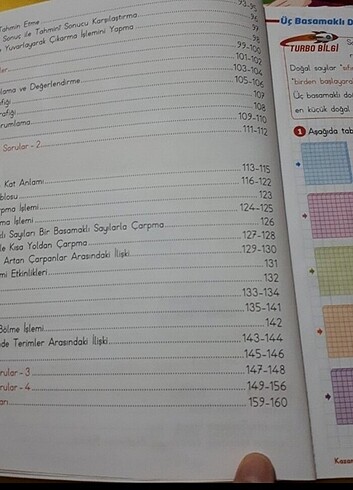 93-95
Tahmin Etme 96
Sonuç ile Tahminî Sonucu Karşılaştırma 97
Yuvarlayarak Çıkarma İşlemini Yapma 98
99-100
ler 101-102
103-104
lama ve Değerlendirme 105-106
afiği 107
rafiği 108
orumlama 109-110
111-112
Sorular - 2
Kat Anlamı 113-115
blosu 116-122
rpma İşlemi 123
ma İşlemi 124-125
klı Sayıları Bir Basamaklı Sayılarla Çarpma 126
le Kısa Yoldan Çarpma 127-128
Artan Çarpanlar Arasındaki İlişki 129-130
mi Etkinlikleri 131
132
133-134
135-141
Bölme İşlemi 142
nde Terimler Arasındaki İlişki 143-144
145-146
orular - 3 147-148
rular - 4 149-156
arı 159-160
Üç Basamaklı D
TURBO BİLGİ
Doğal sayılar "sıfı
"birden başlayarak
Üç basamaklı do
en küçük doğal
1 Aşağıda tab
Kazan